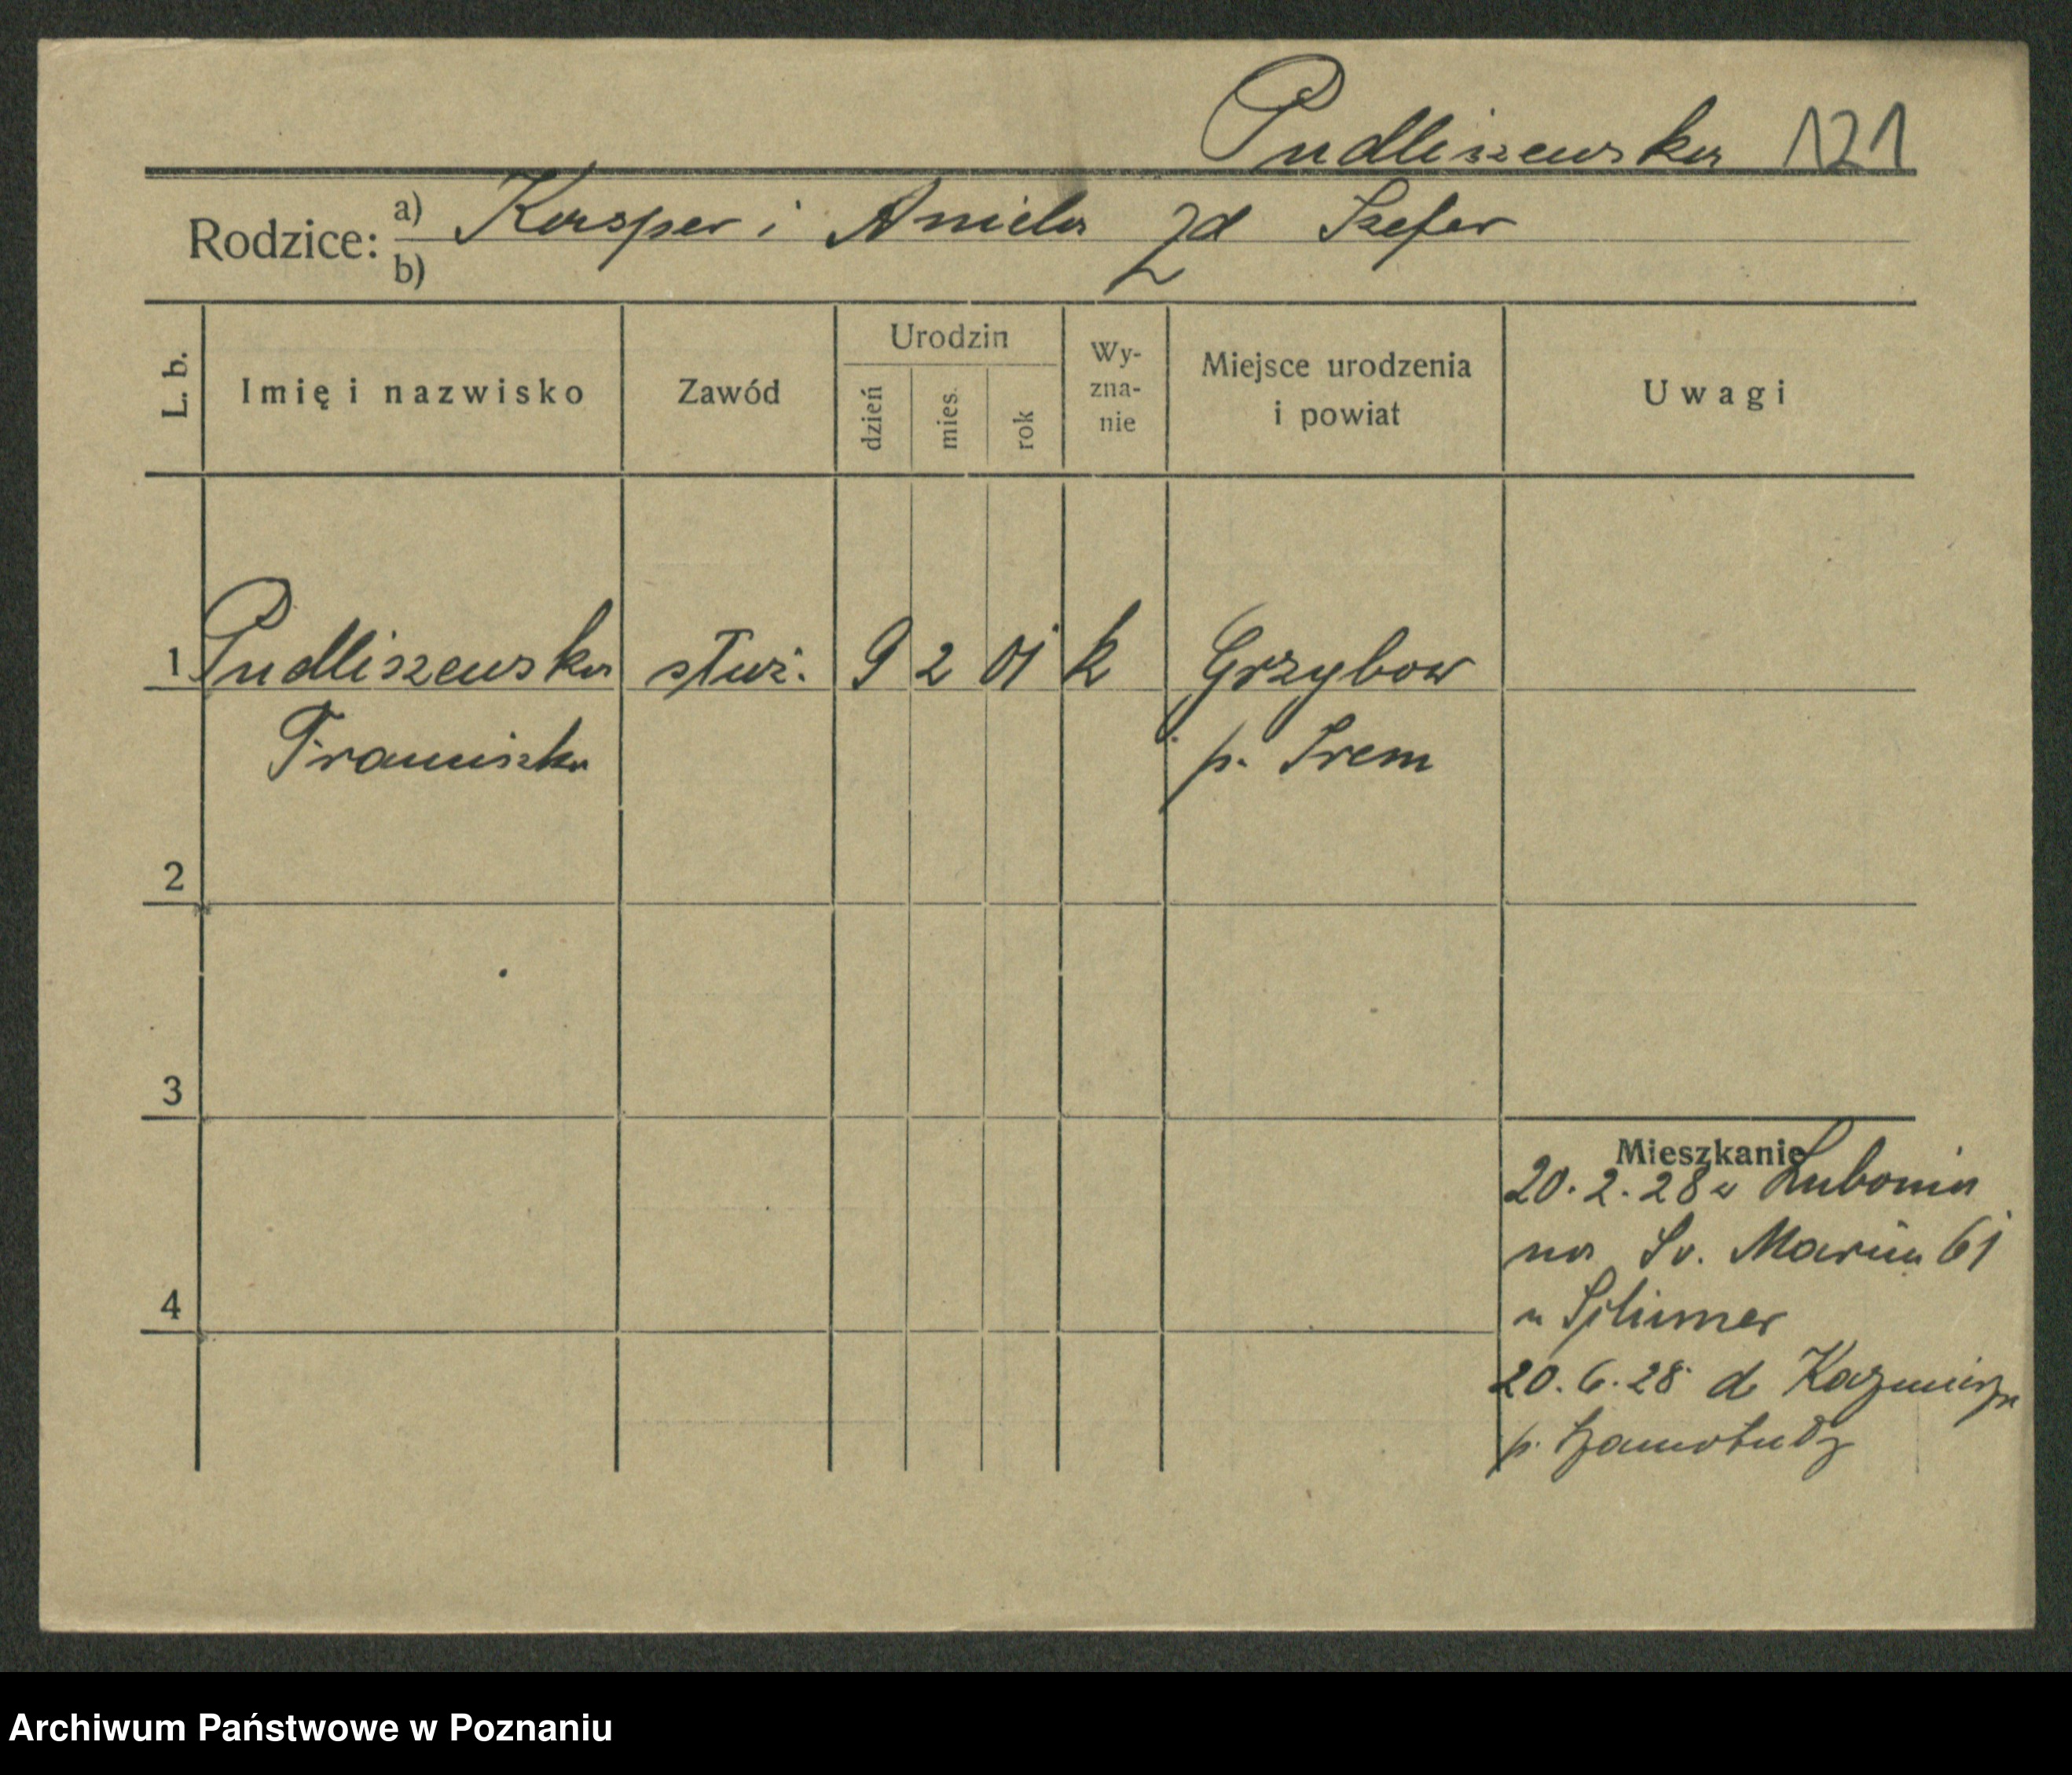 Pudliszewska 121
Rodzice: a) Kasper i Aniela zd Szefer
b)
L. b.
Imię i nazwisko
Zawód
Urodzin
dzień
mies.
rok
Wy-
zna-
nie
Miejsce urodzenia
i powiat
Uwagi
1 Pudliszewska służ. 9 2 01 k Grzybow
Franciszka p. Srem
2
3
4
Mieszkanie
20.2.28 z Lubonia
na Sw. Marcin 61
u
20.6.28 d Kazmierz
p. Szamotuły
Archiwum Państwowe w Poznaniu